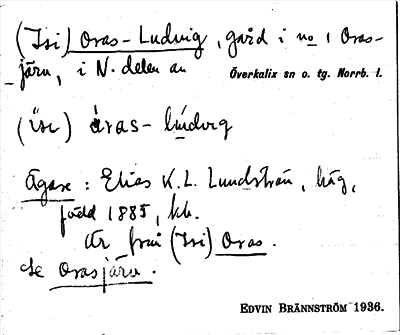 (Isi) Oras-Ludvig, gård i no 1 Oras-
järv, i N. delen av Överkalix sn o. tg. Norrb. l.
(ise) òras-lúdvig
Ägare: Elias K. L. Lundström, häg,
född 1885, kb.
Är från (Isi) Oras.
Se Orasjärv.
EDVIN BRÄNNSTRÖM 1936.